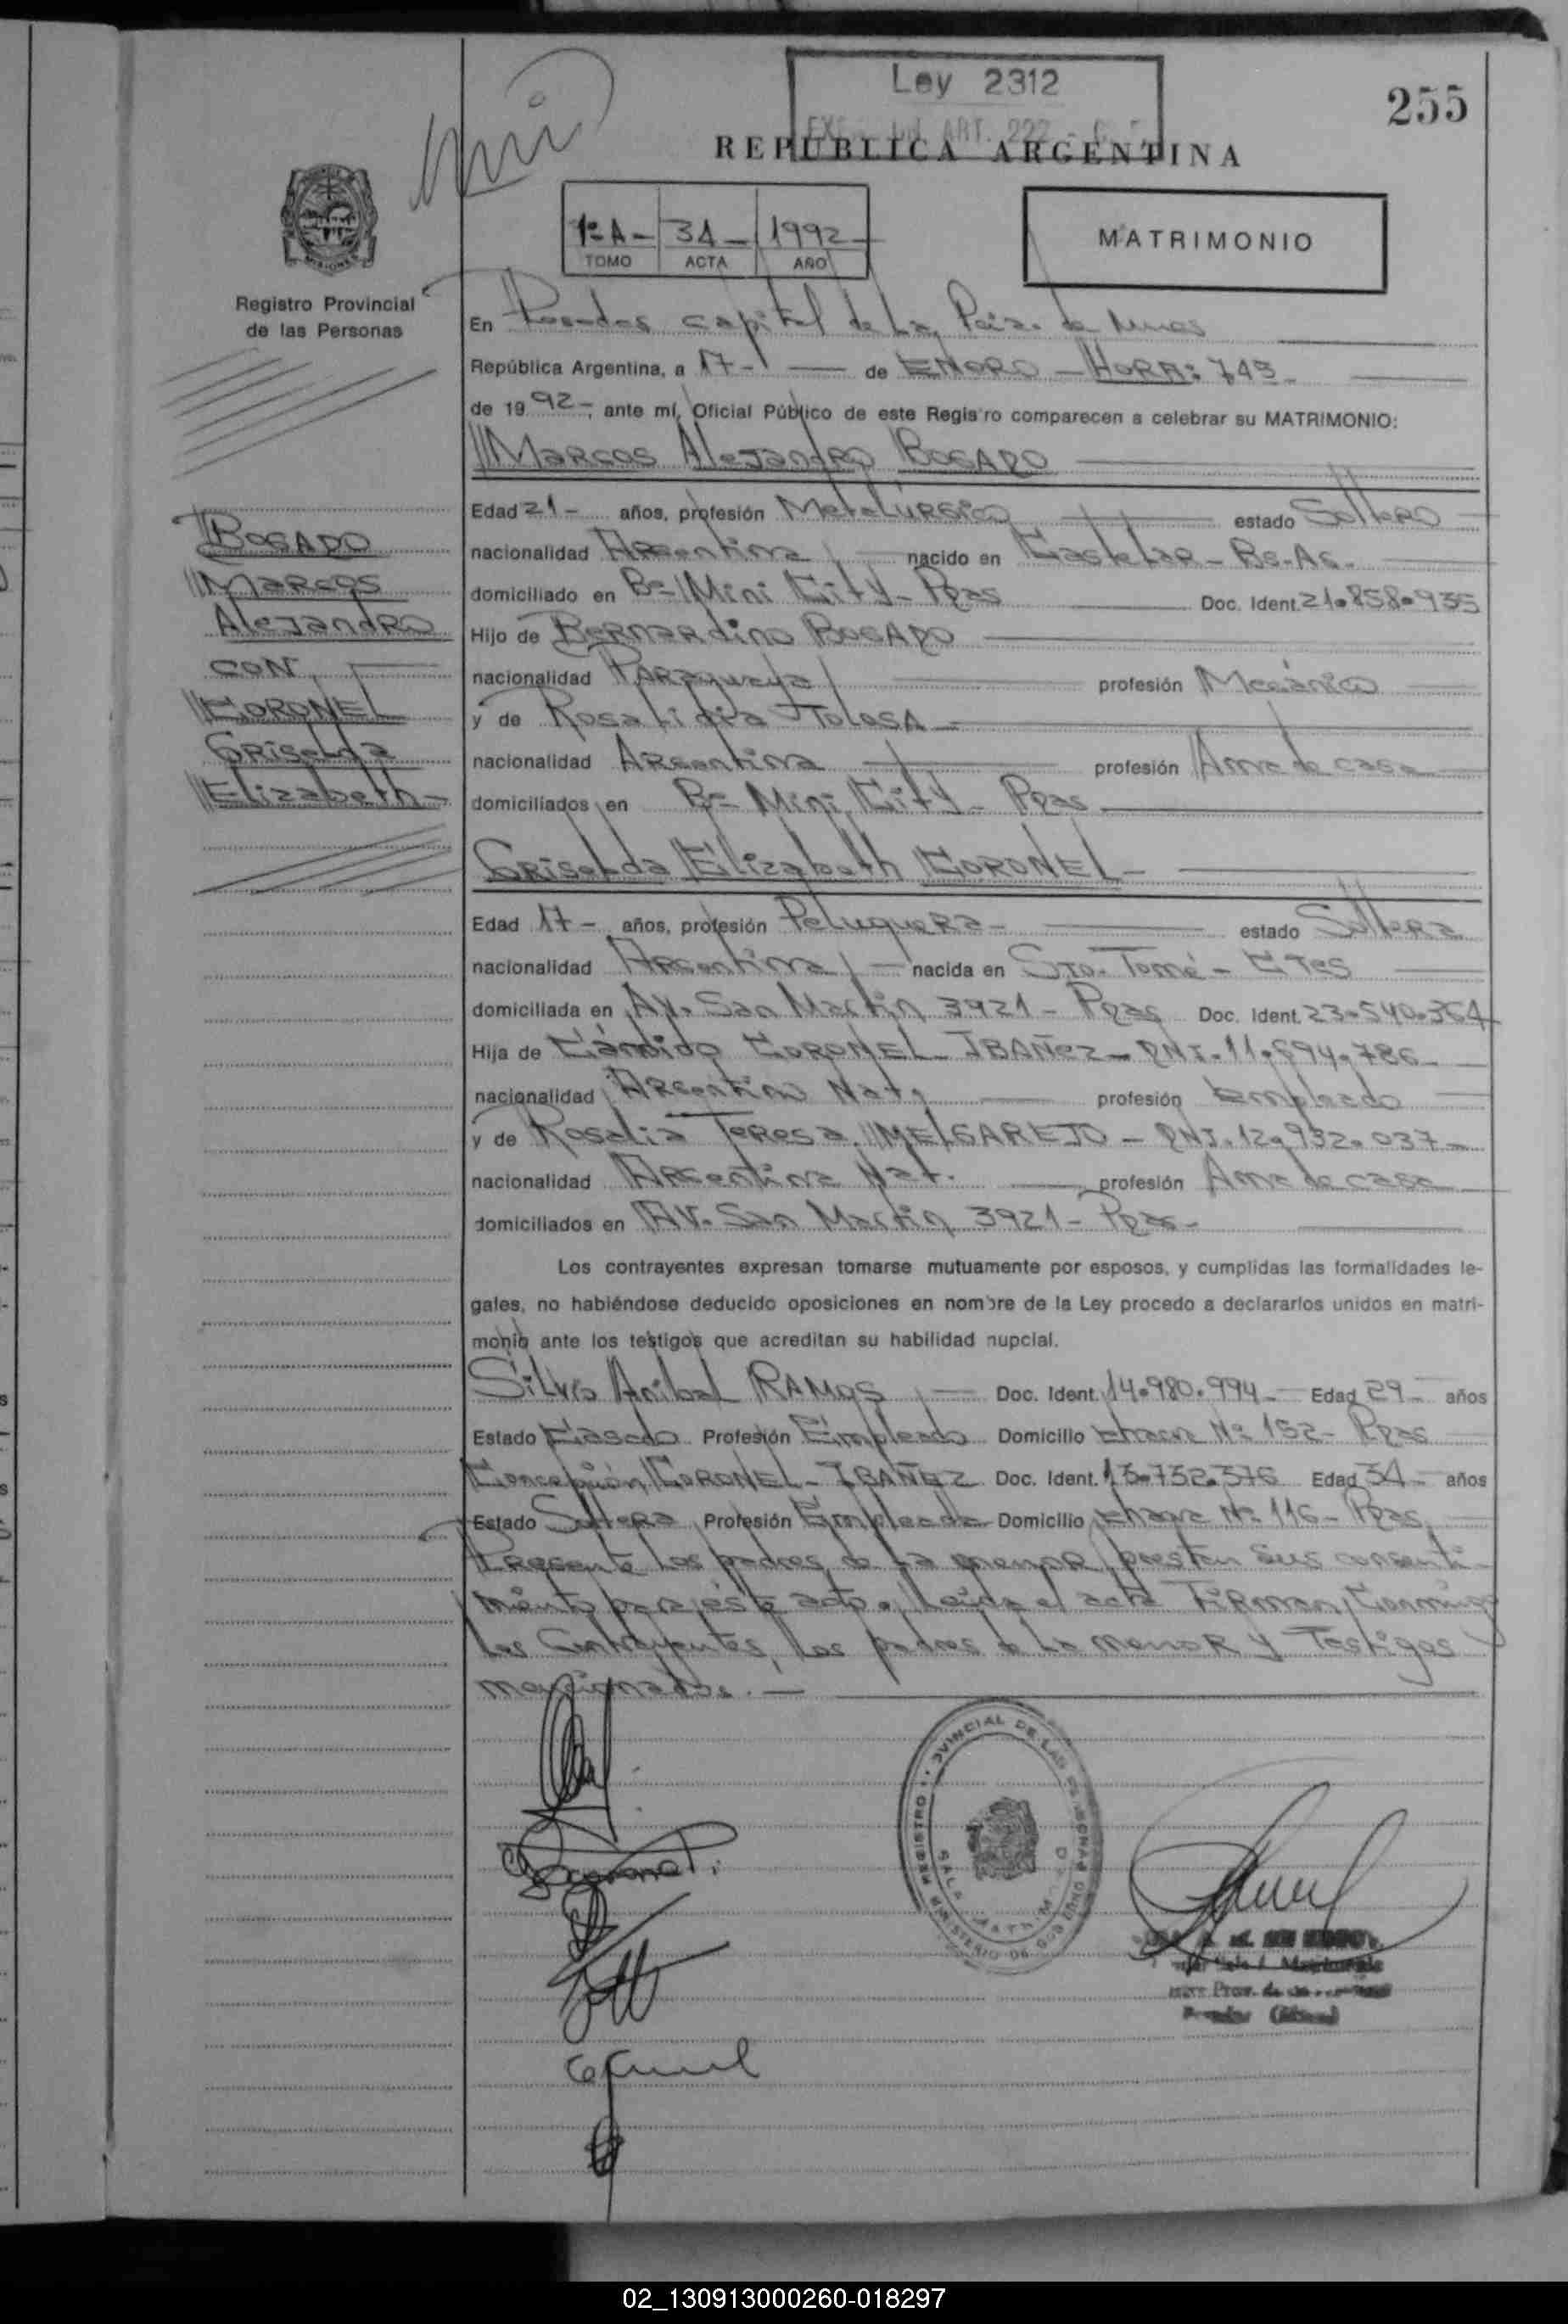 Ley 2312
255
REPUBLICA ARGENTINA
1º A - 34 - 1992
TOMO ACTA AÑO
MATRIMONIO
MISIONES
Registro Provincial
de las Personas
En Posadas capital de La Pcia. de Mnes
República Argentina, a 17 - de ENERO - HORA: 745
de 1992 -, ante mí, Oficial Público de este Registro comparecen a celebrar su MATRIMONIO:
Marcos Alejandro BOGADO
Edad 21 - años, profesión Metalúrgico estado Soltero
nacionalidad Argentina nacido en Castelar - Bs. As.
domiciliado en Bº Mini City - Pdas Doc. Ident. 21.858.935
Hijo de Bernardino BOGADO
nacionalidad Paraguaya profesión Mecánico
y de Rosa Lidia TOLOSA
nacionalidad Argentina profesión Ama de casa
domiciliados en Bº Mini City - Pdas
BOGADO
Marcos
Alejandro
CON
CORONEL
Griselda
Elizabeth -
Griselda Elizabeth CORONEL -
Edad 17 - años, profesión Peluquera - estado Soltera
nacionalidad Argentina nacida en Sto. Tomé - Ctes
domiciliada en Av. San Martín 3921 - Pdas Doc. Ident. 23.540.364
Hija de Cándido CORONEL IBAÑEZ - DNI. 11.694.786
nacionalidad Argentino Nat. profesión Empleado
y de Rosalia Teresa MELGAREJO - DNI. 12.932.037
nacionalidad Argentina Nat. profesión Ama de casa
domiciliados en AV. San Martín 3921 - Pdas -
Los contrayentes expresan tomarse mutuamente por esposos, y cumplidas las formalidades le-
gales, no habiéndose deducido oposiciones en nombre de la Ley procedo a declararlos unidos en matri-
monio ante los testigos que acreditan su habilidad nupcial.
Silvio Anibal RAMOS Doc. Ident. 14.980.994 Edad 29 años
Estado Casado Profesión Empleado Domicilio Chacra Nº 152 - Pdas
Concepción CORONEL - IBAÑEZ Doc. Ident. 13.732.376 Edad 34 años
Estado Soltera Profesión Empleada Domicilio Chacra Nº 116 - Pdas
Presente los padres de la menor, prestan sus consenti-
miento para éste acto. Leída el acta Firman Conmigo
los Contrayentes, los padres de la menor y Testigos
mencionados. -
REGISTRO PROVINCIAL DE LAS PERSONAS
MINISTERIO DE GOBIERNO
02_130913000260-018297